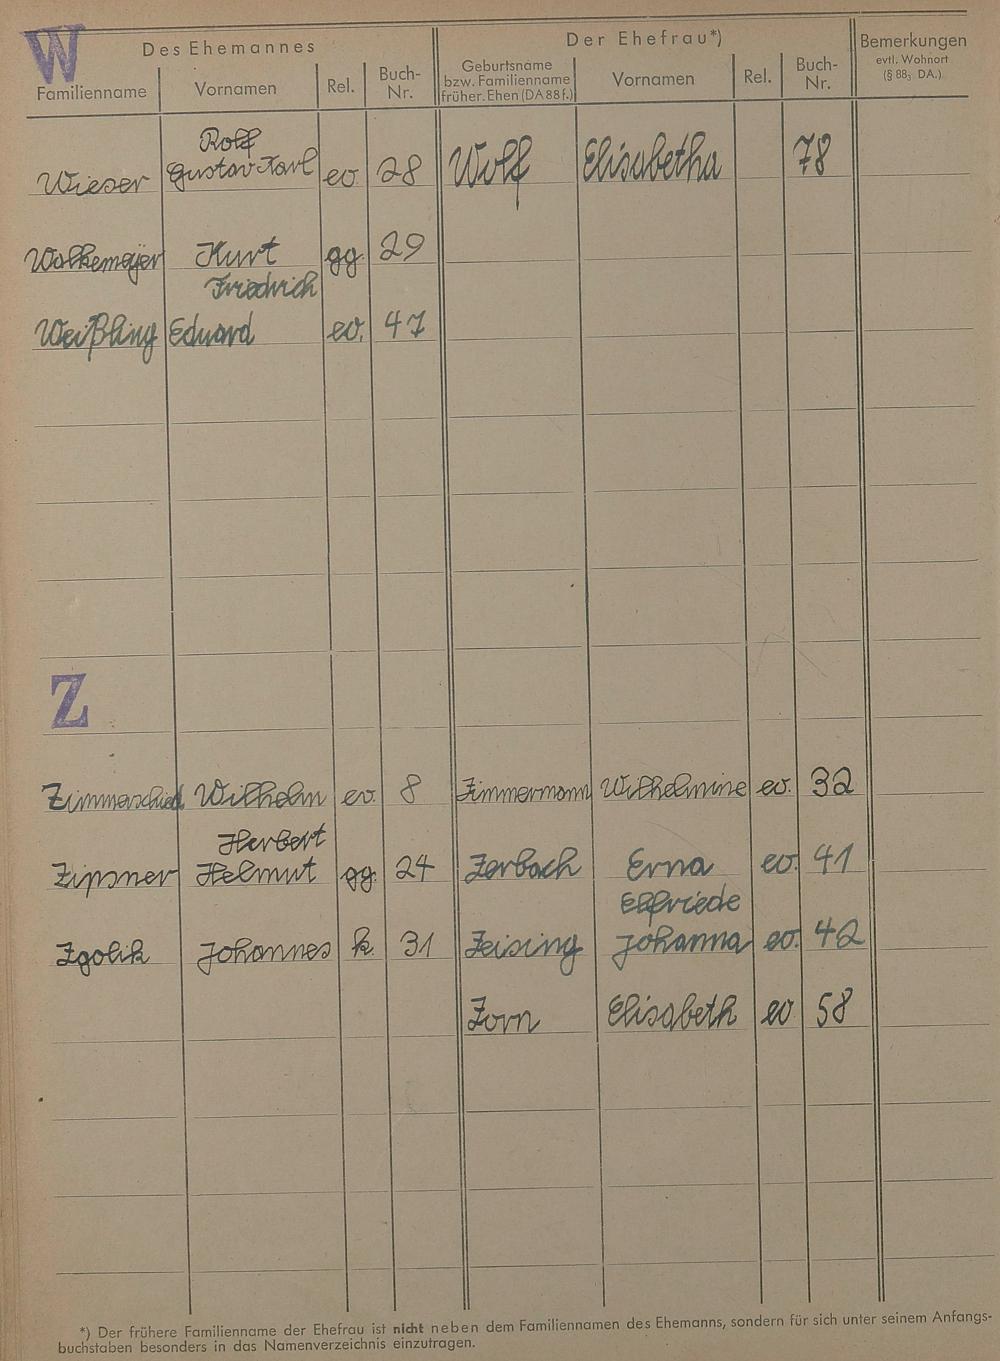 W
Des Ehemannes
Der Ehefrau*)
Familienname
Vornamen
Rel.
Buch-
Nr.
Geburtsname
bzw. Familienname
früher. Ehen (DA 88 f.)
Vornamen
Rel.
Buch-
Nr.
Bemerkungen
evtl. Wohnort
(§ 88; DA.)
Rolf
Wieser Gustav Karl ev. 28 Wolf Elisabetha 78
Kurt gg. 29
Friedrich
Weißling Eduard ev. 47
Z
Zimmerschied Wilhelm ev. 8 Zimmermann Wilhelmine ev. 32
Herbert
Zipsner Helmut gg. 24 Zerbach Erna ev. 41
Elfriede
Zgolik Johannes k. 31 Zeising Johanna ev. 42
Zorn Elisabeth ev 58
*) Der frühere Familienname der Ehefrau ist nicht neben dem Familiennamen des Ehemanns, sondern für sich unter seinem Anfangs-
buchstaben besonders in das Namenverzeichnis einzutragen.